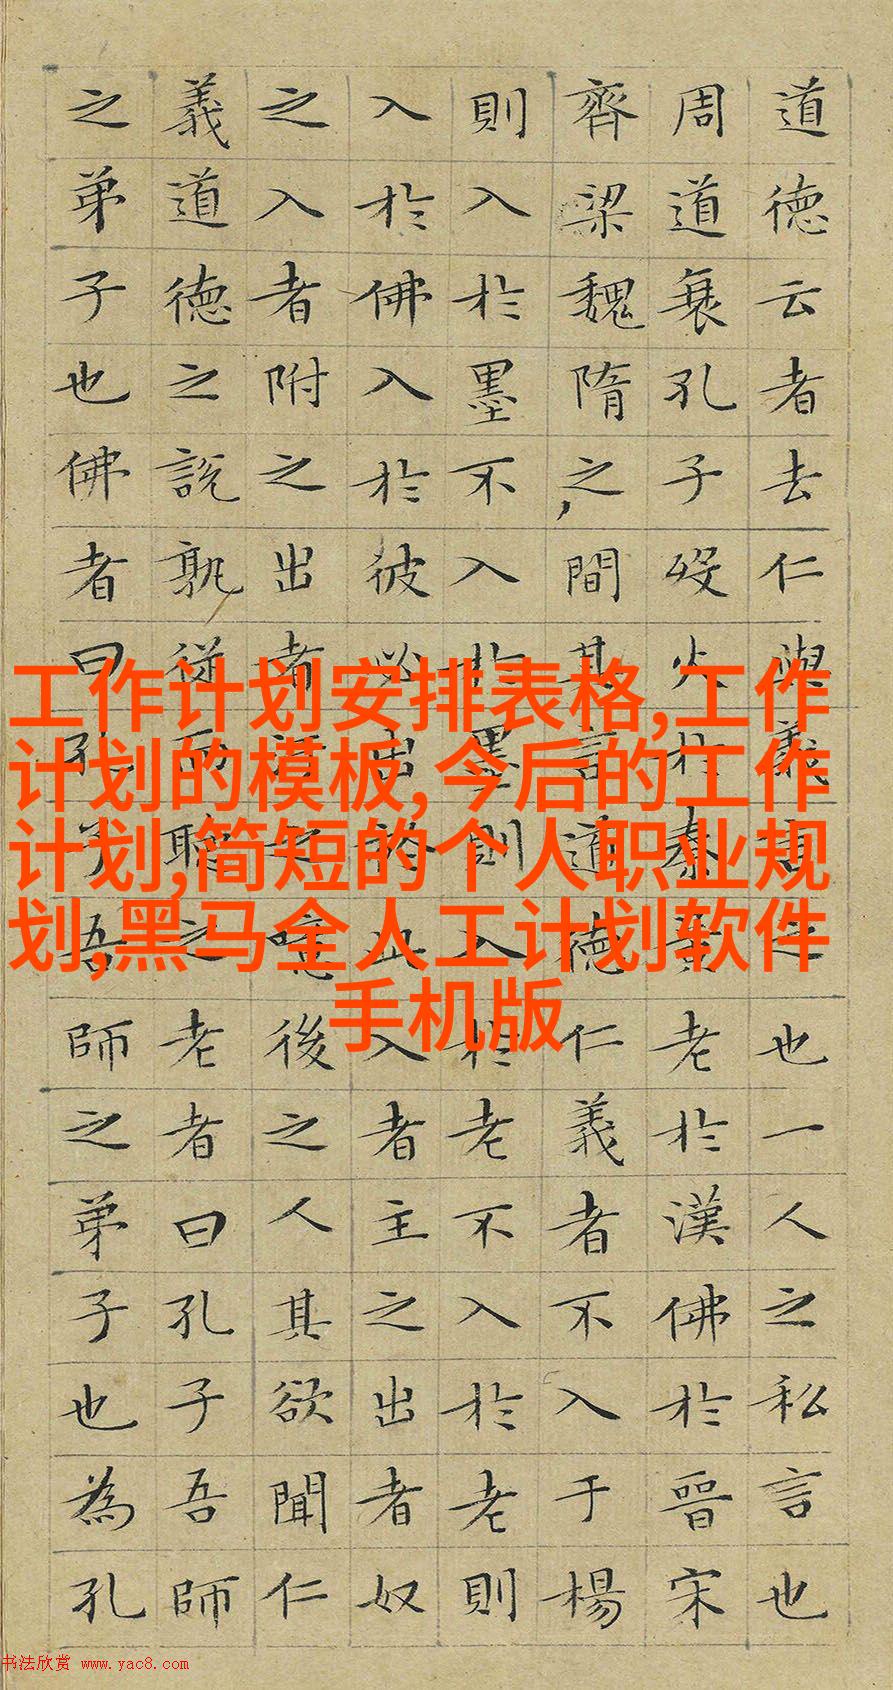 道德云者去仁與義言之也一人之私言也
周道衰孔子歿火於秦黃老於漢佛於晉宋
齊梁魏隋之間其言道德仁義者不入于楊
則入於墨不入於墨則入於老不入於老則
入於佛入於彼必出於此入者主之出者奴
之入者附之出者汙之噫後之人其欲聞仁
義道德之説孰從而聽之老者曰孔子吾師
之弟子也佛者曰孔子吾師之弟子也為孔
工作计划安排表格,工作
计划的模板,今后的工作
计划,简短的个人职业规
划,黑马全人工计划软件
手机版
书法欣赏 www.yac8.com